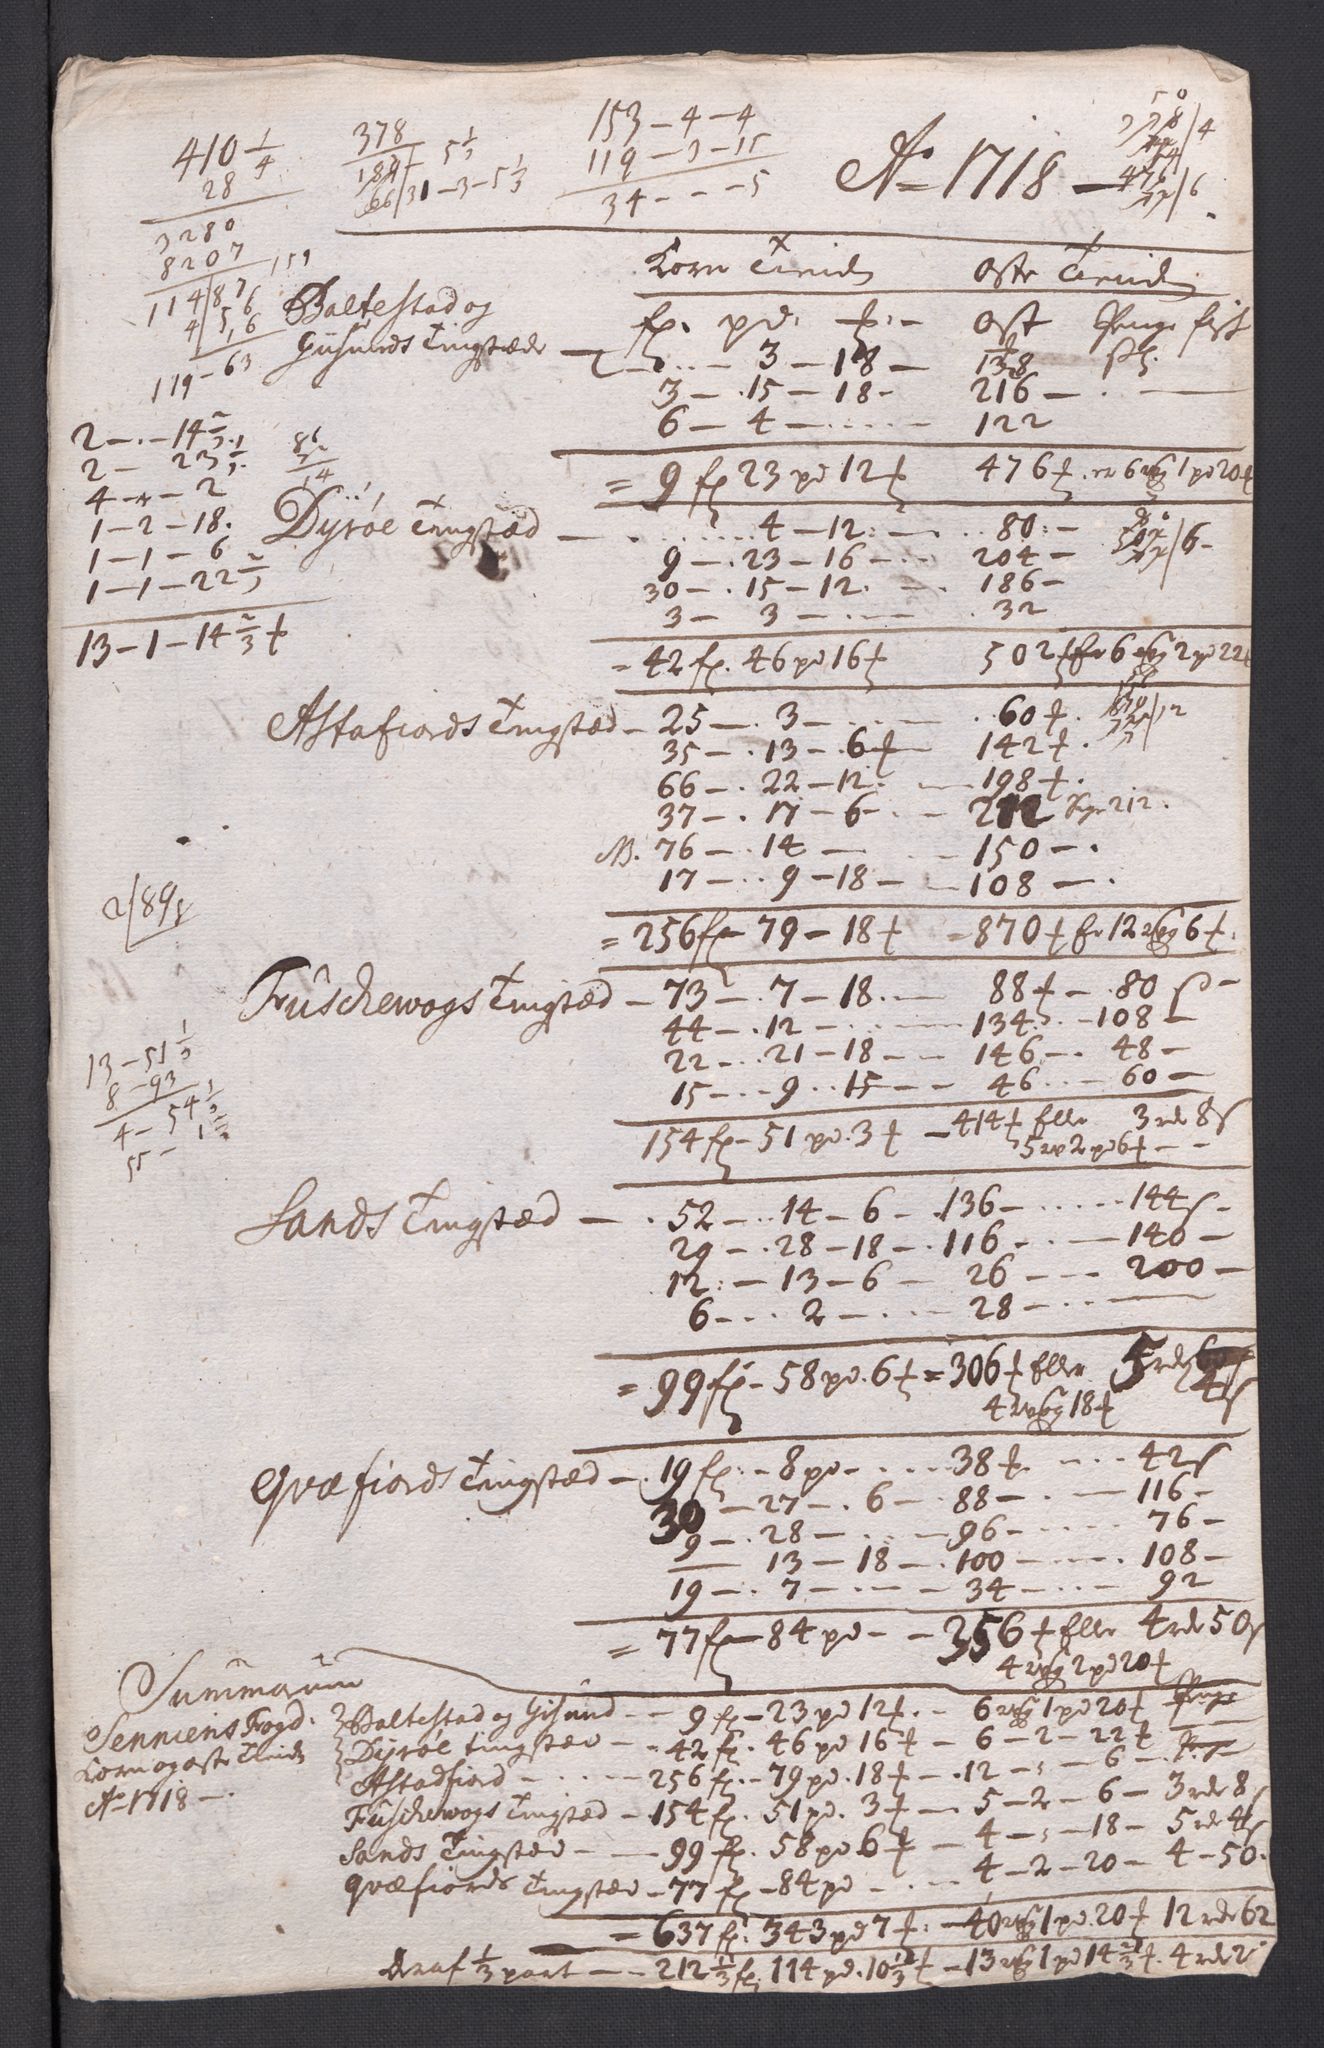 410 1/4
28
3280
8207
114/87
4/56
119-63
378
189
66/31-3-5 1/3
5 1/3
153-4-4
119-3-15
34---5
Ao 1718
Korn Tiende Oste Tiende
Baltestad og
Gisunds Tingstæde
fs. pd. ƚ. ost Penge fisk
3-18- 138
3-.15-18- 216-
6-4- 122
=9 fs 23 pd 12ƚ 476ƚ. er 6 wog 1 pd 20ƚ
2-.-14 2/3
2-23 1/3
4-.-2
1-2-18.
1-1-6
1-1-22 2/3
13-1-14 2/3 ƚ
86
14
Dyrøe Tingstæd
4-12 80-
9-.23-16 204-
30-.15-12. 186-
3-3- 32
=42 fs. 46 pd 16ƚ 502ƚ er 6 wog 2 pd 22ƚ
Astafiords Tingstæd-25-.3- 60ƚ.
35-.13-.6ƚ 142ƚ.
66-.22-12. 198ƚ.
37-.17-6- 212 Sige 212.
NB. 76-.14- 150-.
17-.9-18- 108-.
=256 fs 79-18ƚ -870ƚ er 12 wog 6ƚ.
2/89
Fuschewogs Tingstæd-73-.7-18.- 88ƚ-.80 s-
44-.12- 134.-108-
22-.21-18- 146-.48-
15-.9..15- 46-60-
154 fs-51 pd.3ƚ -414ƚ Eller 3 rd 8s
5 w 2 pd 6ƚ--
13-51 1/3
8-93
4-54 1/3
55-
Sands Tingstæd-.52-.14-6-.136-144s-
29-.28-18-.116-140-
12.-13-6-26-200-
6-.2-.-28-
=99 fs-58 pd.6ƚ=306ƚ Eller 5 rd 4s
4 wog 18ƚ
Qvæfiords Tingstæd-.19 fs.-8 pd-38ƚ.42s
30-27-.6-88-.116-
9-.28-96-76-
13-18-.100-108-
19-.7-34-92
=77 fs-84 pd--356ƚ Eller 4 rd 50s
4 wog 2 pd 20ƚ
Summarum
Senniens Fogd.
Korn og oste Tiende
Ao 1718-.
Baltestad og Gisund--9 fs-23 pd 12ƚ.-6 wog 1 pd 20ƚ Penge
Dyrøe Tingstæd-.42 fs. 46 pd 16ƚ-6-2-22ƚ
Astadfiord-256 fs.-79 pd.18ƚ-.12-.-6-
Fuschewogs Tingstæd-154 fs. 51 pd. 3ƚ-5-2-6-3 rd 8s
Sands Tingstæd--99 fs. 58 pd 6ƚ-4-.-18-5 rd 4s
Qvæfiords Tingstæd-77 fs-84 pd-4-2-20-4-50.
=637 fs. 343 pd 7ƚ.-40 wog 1 pd.20ƚ 12 rd 62
Deraf 1/3 part--212 1/3 fs. 114 pd. 10 1/3 ƚ-13 wog 1 pd 14 2/3 ƚ. 4 rd 2